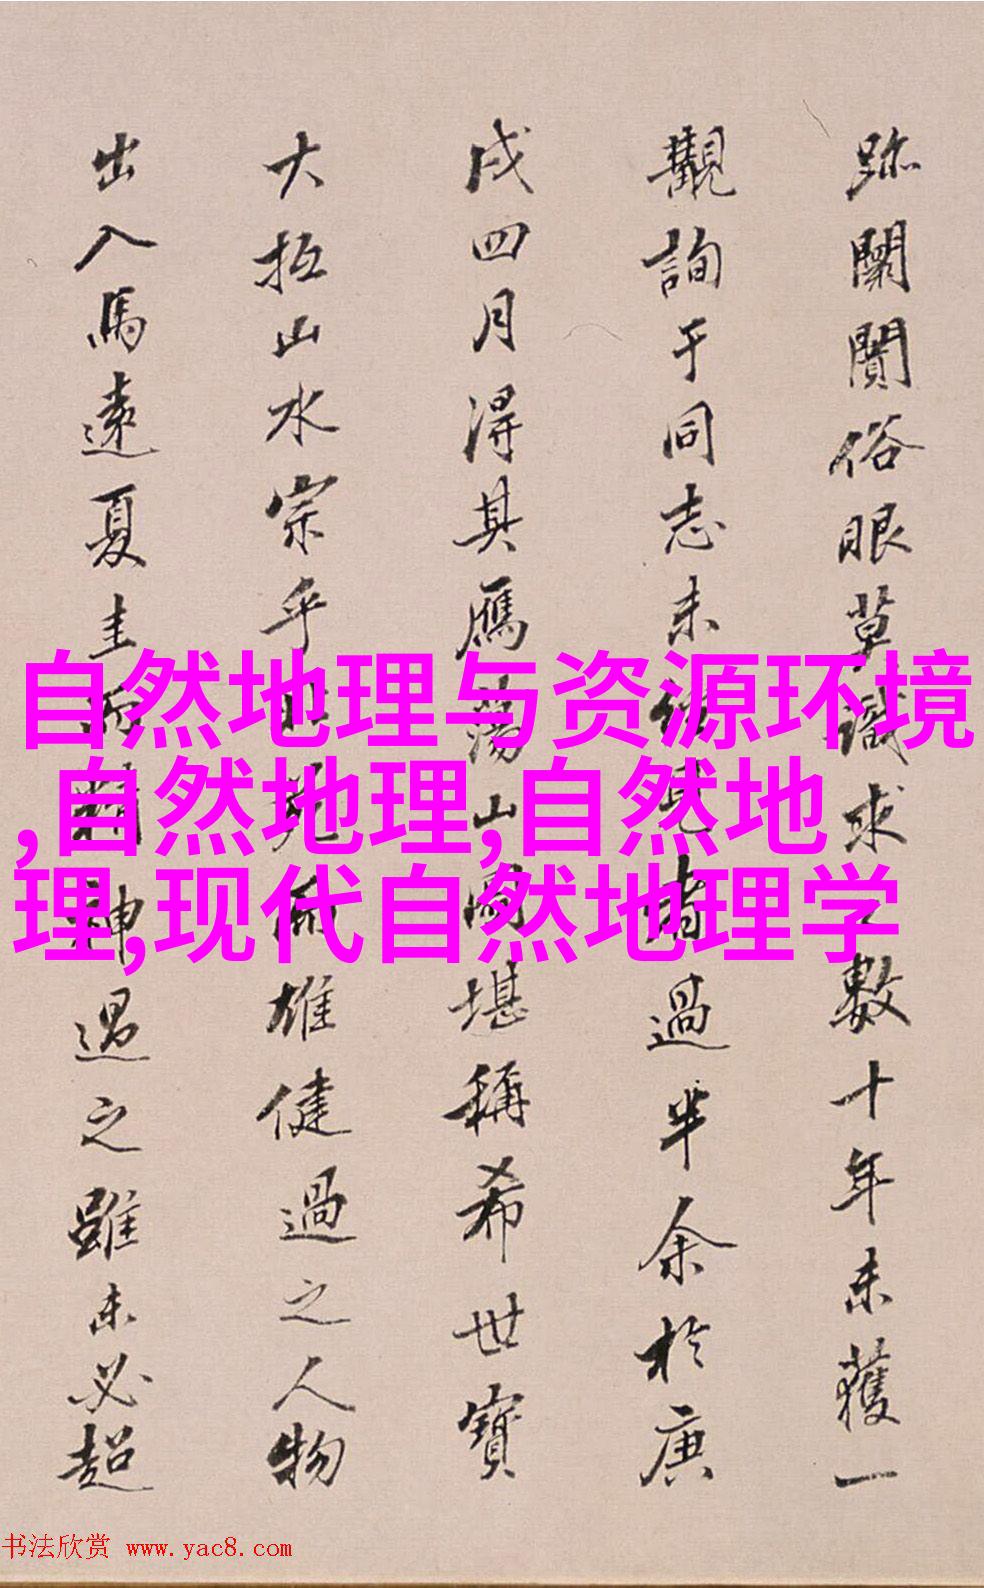 跡闤闠俗眼識求之數十年未獲一
觀詢于同志未經見者過半余於庚
戌四月得其鴈蕩山圖堪稱希世寶
大抵山水宗乎苑而雄健過之人物
出入馬遠夏圭而精神過之雖未必超
自然地理与资源环境
,自然地理,自然地
理,现代自然地理学
书法欣赏 www.yac8.com